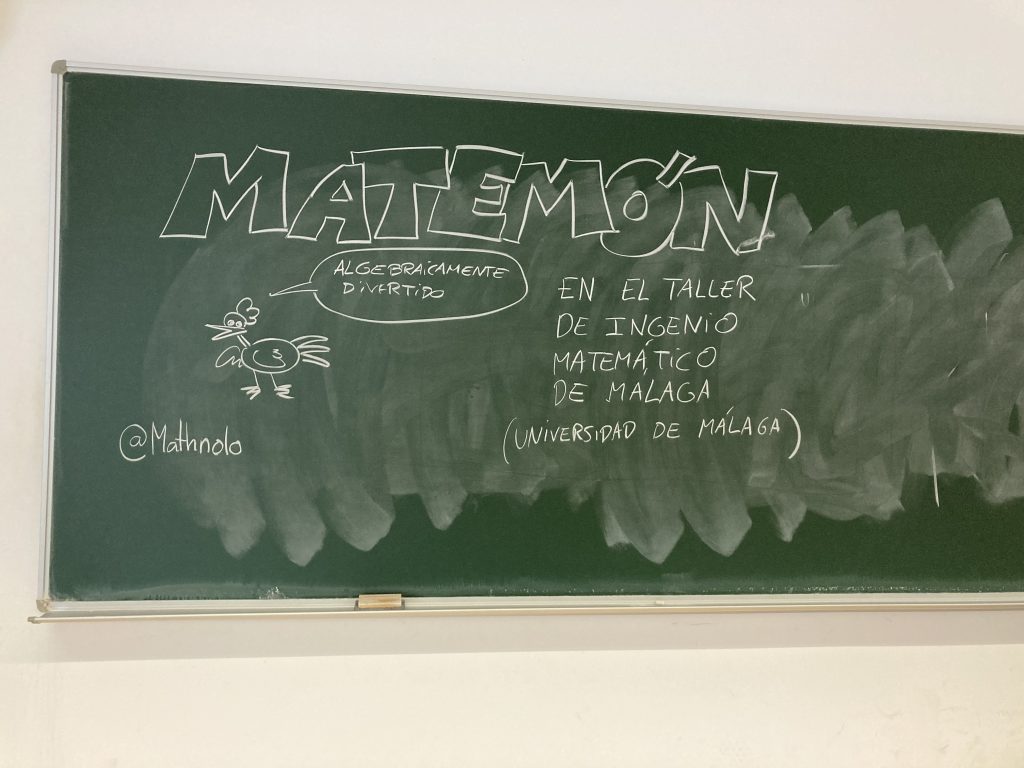 MATEMÓN
ALGEBRAiCAMENTE
DiVERTiDO
EN EL TALLER
DE INGENiO
MATEMÁTiCO
DE MALAGA
(UNIVERSIDAD DE MÁLAGA)
@Mathnolo